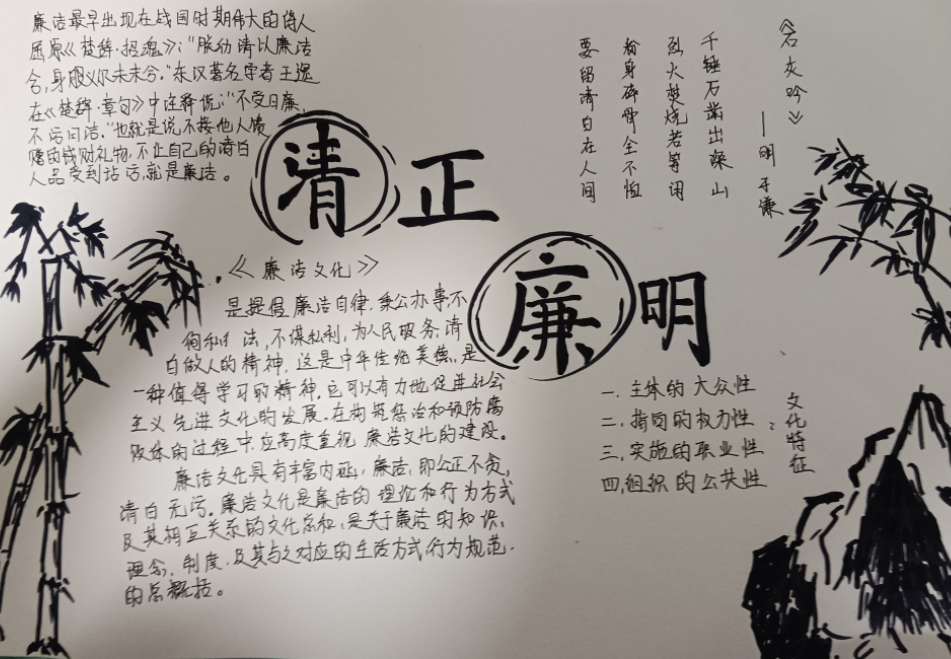 廉洁最早出现在战国时期伟大的诗人
屈原《楚辞·招魂》:"朕幼清以廉洁
兮,身服义尔未未兮。"东汉著名学者王逸
在《楚辞·章句》中注释说:"不受曰廉,
不污曰洁。"也就是说不接他人馈
赠的钱财礼物,不让自己的清白
人品受到玷污,就是廉洁。
清正
廉明
《石灰吟》
——明 于谦
千锤万凿出深山
烈火焚烧若等闲
粉身碎骨全不怕
要留清白在人间
《廉洁文化》
是提倡廉洁自律,秉公办事,不
徇私 法,不谋私利,为人民服务,清
白做人的精神,这是中华传统美德,是
一种值得学习的精神,它可以有力地促进社会
主义先进文化的发展。在构筑惩治和预防腐
败体的过程中应高度重视廉洁文化的建设。
廉洁文化具有丰富内涵,廉洁,即公正不贪,
清白无污。廉洁文化是廉洁的理论和行为方式
及其相互关系的文化总和,是关于廉洁的知识,
理念,制度,及其与之对应的生活方式,行为规范.
的总概括。
文化特征:
一.主体的大众性
二.指向的权力性
三.实施的职业性
四.组织的公共性